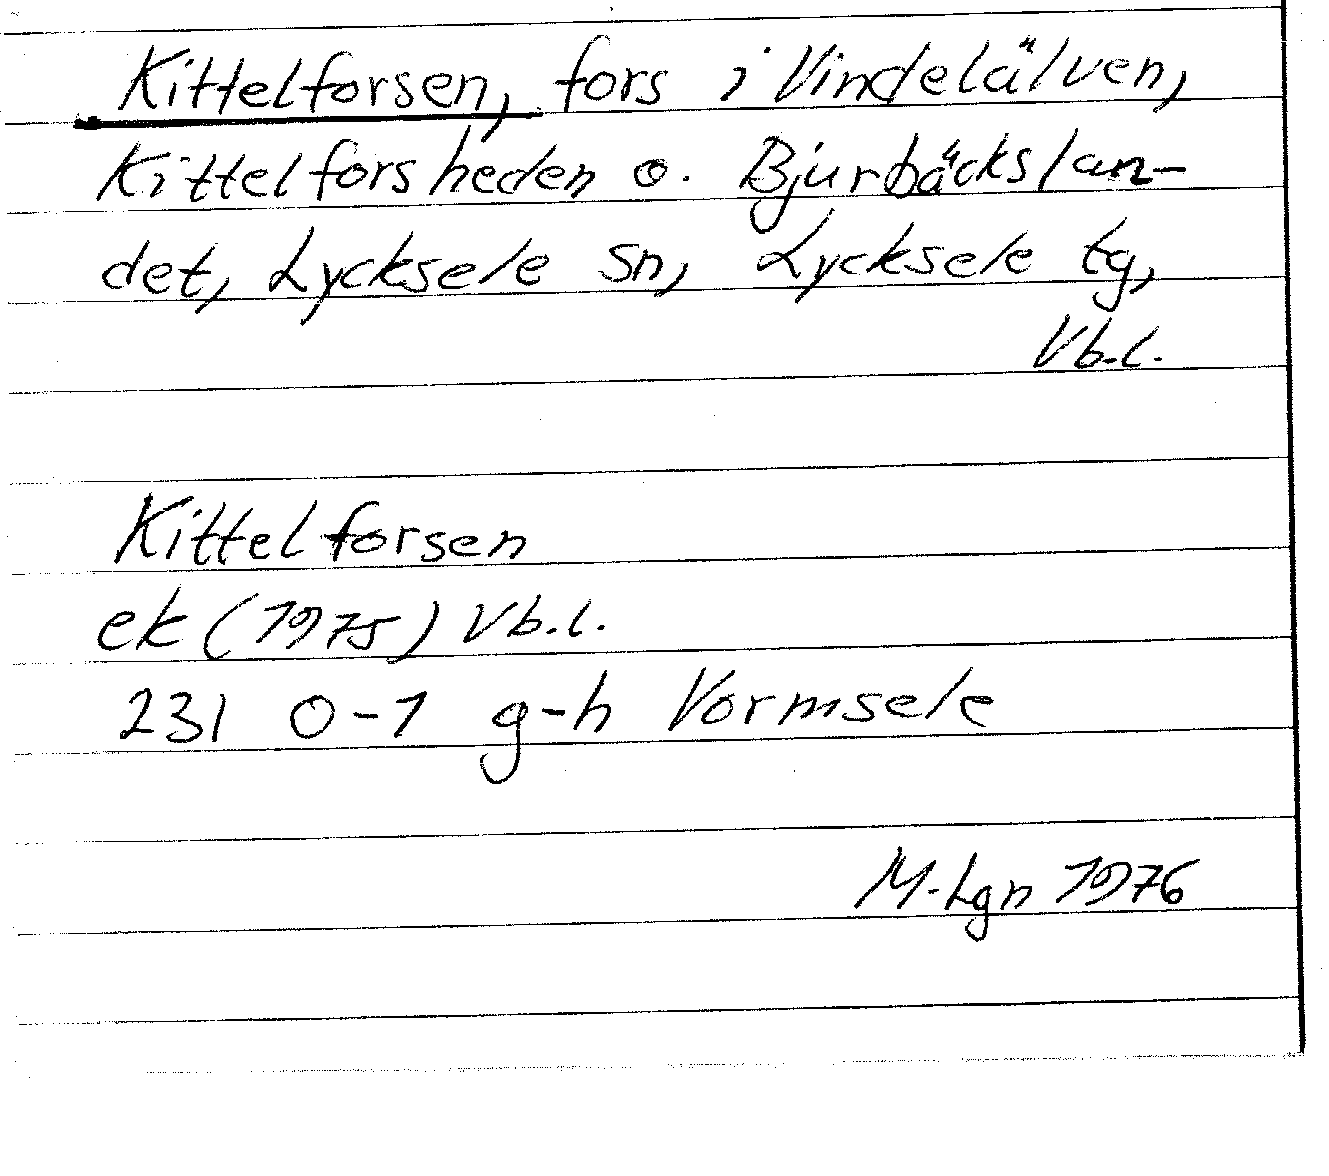 Kittelforsen, fors i Vindelälven,
Kittelforsheden o. Bjurbäckslan-
det, Lycksele sn, Lycksele tg,
Vb.l.
Kittelforsen
ek (1975) Vb.l.
231 0-1 g-h Vormsele
M-Lgn 1976